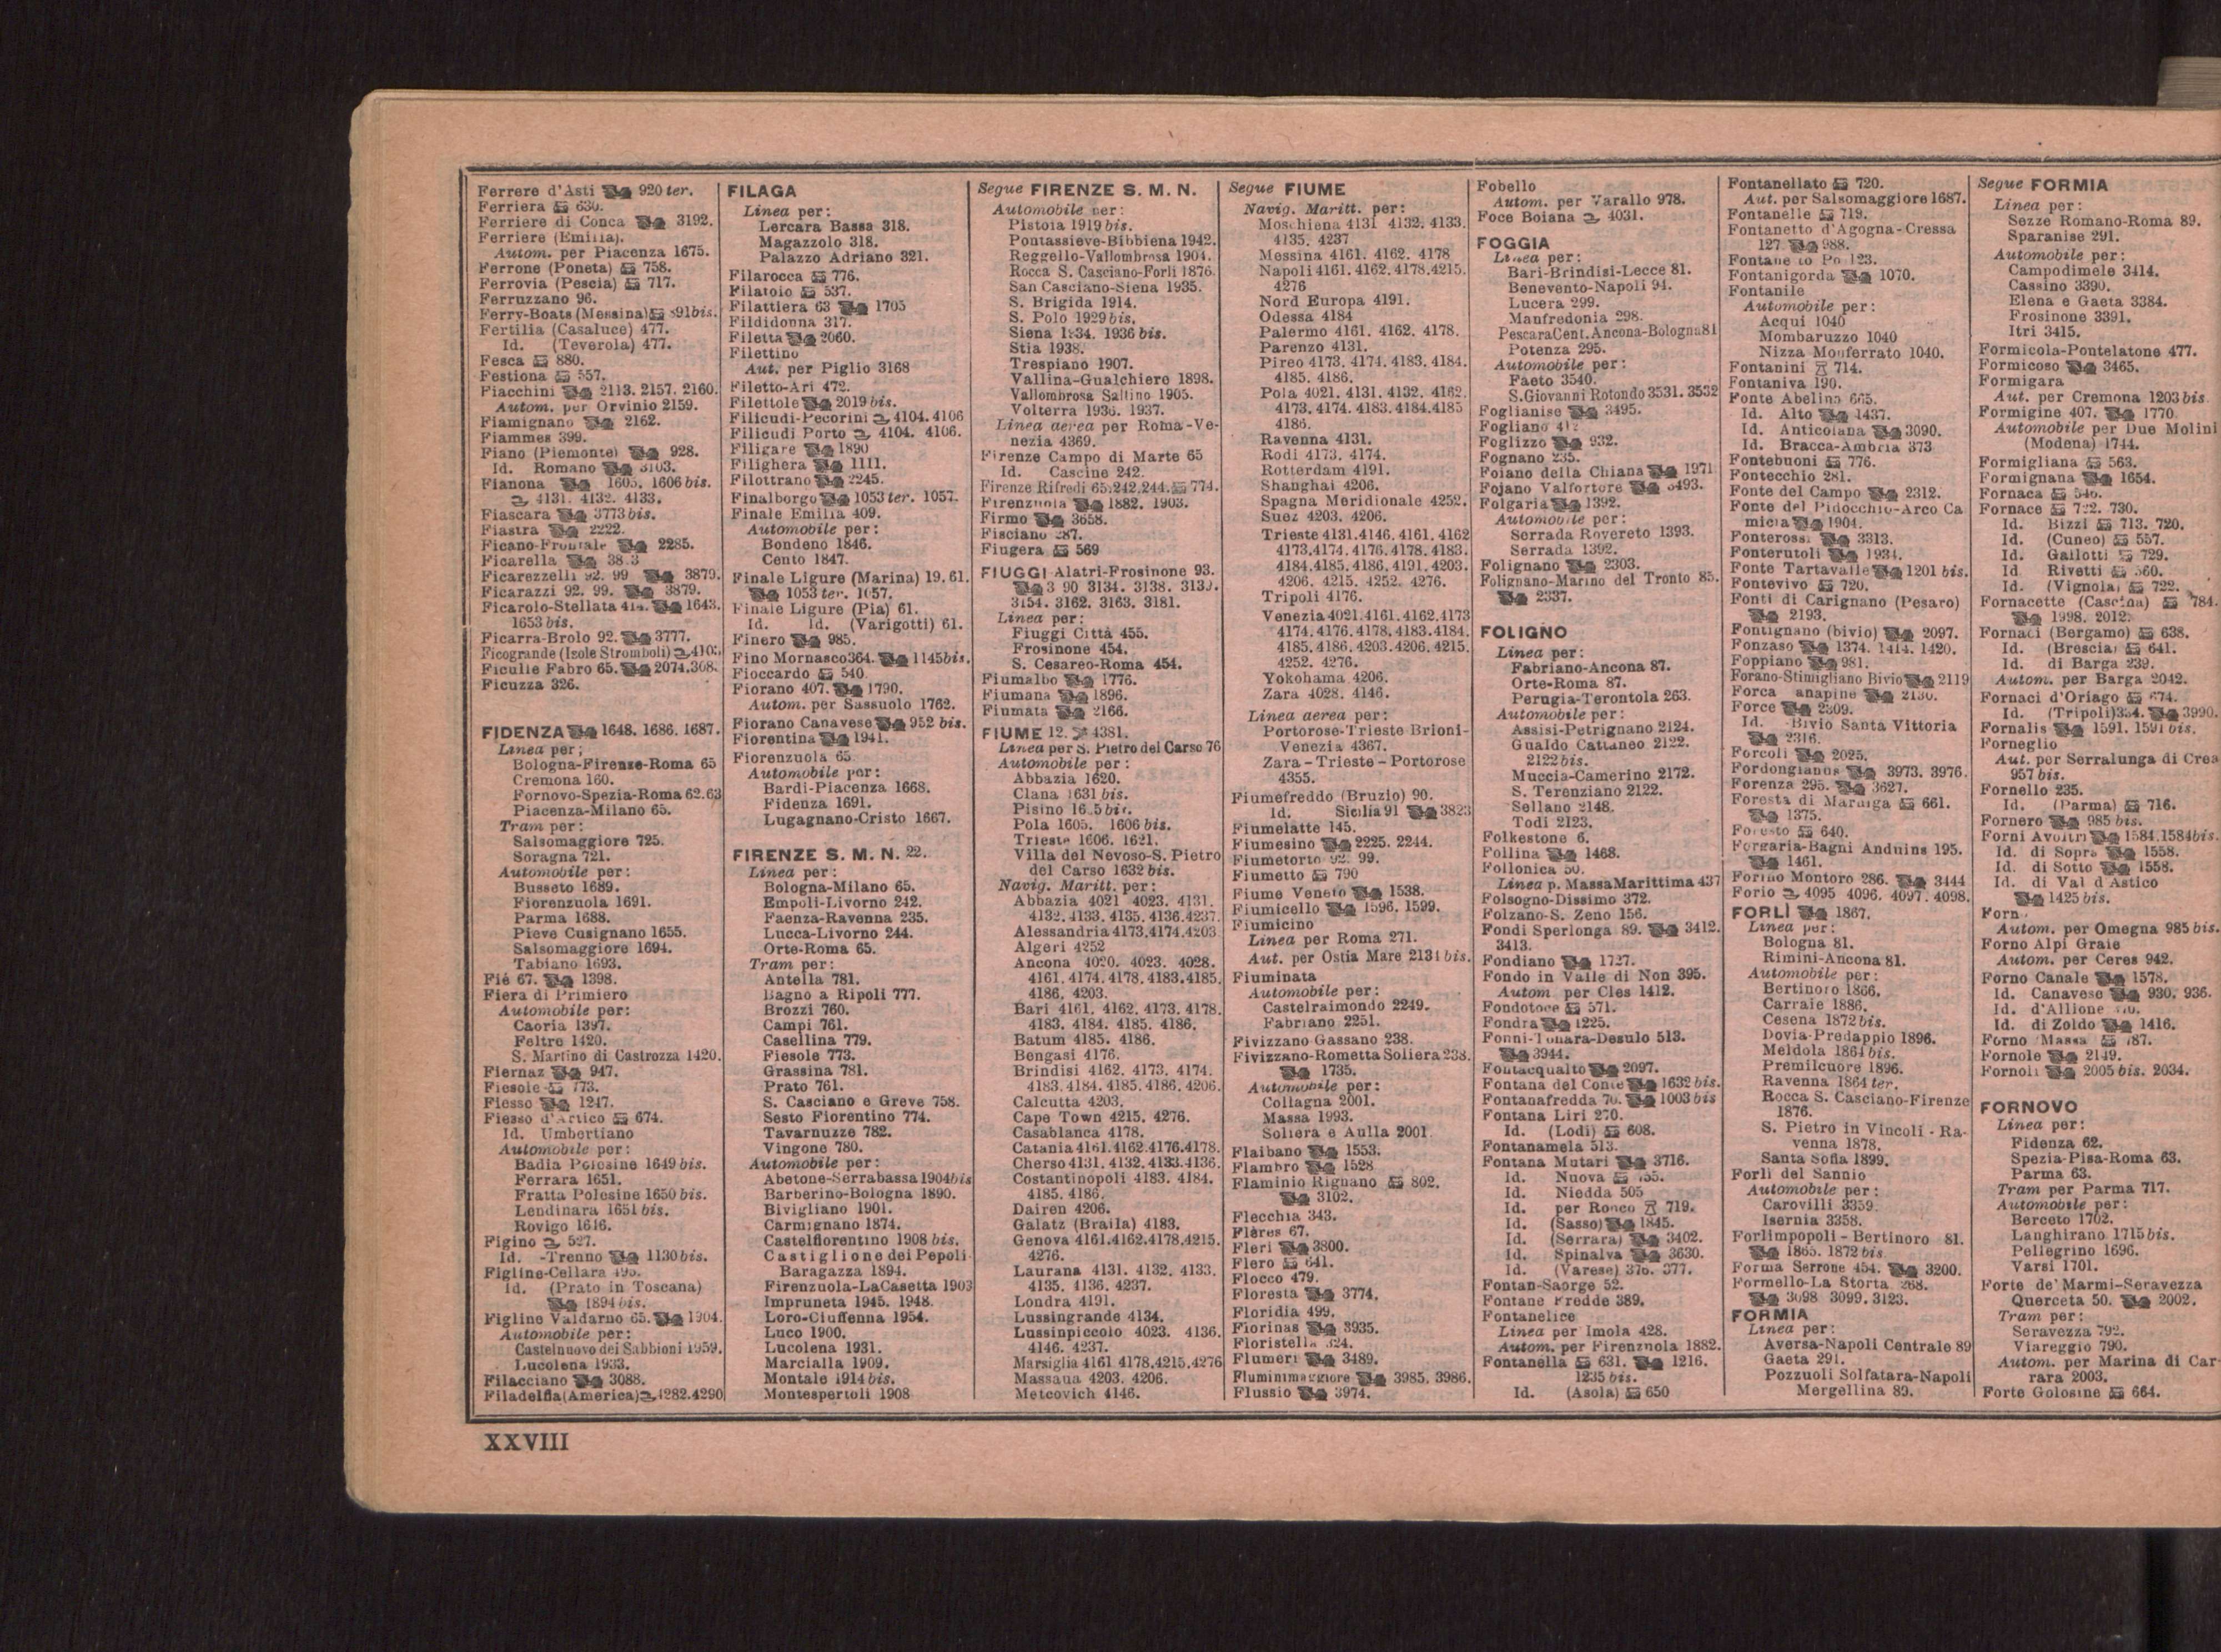 Ferrere d'Asti 920 ter.
Ferriera 630.
Ferriere di Conca 3192.
Ferriere (Emilia).
Autom. per Piacenza 1675.
Ferrone (Poneta) 758.
Ferrovia (Pescia) 717.
Ferruzzano 96.
Ferry-Boats (Messina) 91 bis.
Fertilia (Casaluce) 477.
Id. (Teverola) 477.
Fesca 880.
Festiona 557.
Fiacchini 2113. 2157. 2160.
Autom. per Orvinio 2159.
Fiamignano 2162.
Fiammes 399.
Fiano (Piemonte) 928.
Id. Romano 3103.
Fianona 1605. 1606 bis.
4131. 4132. 4133.
Fiascara 3773 bis.
Fiastra 2222.
Ficano-Frontale 2285.
Ficarella
Ficarezzelli 92. 99 3879.
Ficarazzi 92. 99. 3879.
Ficarolo-Stellata 1643.
1653 bis.
Ficarra-Brolo 92. 3777.
Ficogrande (Isole Stromboli)
Ficulle Fabro 65. 2074.
Ficuzza 326.
FIDENZA 1648. 1686. 1687.
Linea per;
Bologna-Firenze-Roma 65
Cremona 160.
Fornovo-Spezia-Roma 62.63
Piacenza-Milano 65.
Tram per:
Salsomaggiore 725.
Soragna 721.
Automobile per:
Busseto 1689.
Fiorenzuola 1691.
Parma 1688.
Pieve Cusignano 1655.
Salsomaggiore 1694.
Tabiano 1693.
Fié 67. 1398.
Fiera di Primiero
Automobile per:
Caoria 1397.
Feltre 1420.
S. Martino di Castrozza 1420.
Fiernaz 947.
Fiesole 773.
Fiesso 1247.
Fiesso d'Artico 674.
Id. Umbertiano
Automobile per:
Badia Polesine 1649 bis.
Ferrara 1651.
Fratta Polesine 1650 bis.
Lendinara 1651 bis.
Rovigo 1616.
Figino 527.
Id. -Trenno 1130 bis.
Figline-Cellara
Id. (Prato in Toscana)
1894 bis.
Figline Valdarno 65. 1904.
Automobile per:
Castelnuovo dei Sabbioni 1959.
Lucolena 1933.
Filacciano 3088.
Filadelfia (America) 4282.4290
FILAGA
Linea per:
Lercara Bassa 318.
Magazzolo 318.
Palazzo Adriano 321.
Filarocca 776.
Filatoio 537.
Filattiera 63 1705
Fildidonna 317.
Filetta 2060.
Filettino
Aut. per Piglio 3168
Filetto-Ari 472.
Filettole 2019 bis.
Filicudi-Pecorini 4104. 4106
Filicudi Porto 4104. 4106.
Filigare 1890
Filighera 1111.
Filottrano 2245.
Finalborgo 1053 ter. 1057.
Finale Emilia 409.
Automobile per:
Bondeno 1846.
Cento 1847.
Finale Ligure (Marina) 19. 61.
1053 ter. 1057.
Finale Ligure (Pia) 61.
Id. Id. (Varigotti) 61.
Finero 985.
Fino Mornasco 364. 1145 bis.
Fioccardo 540
Fiorano 407. 1790.
Autom. per Sassuolo 1762.
Fiorano Canavese 952 bis.
Fiorentina 1941.
Fiorenzuola 65
Automobile per:
Bardi-Piacenza 1668.
Fidenza 1691.
Lugagnano-Cristo 1667.
FIRENZE S. M. N. 22.
Linea per:
Bologna-Milano 65.
Empoli-Livorno 242.
Faenza-Ravenna 235.
Lucca-Livorno 244.
Orte-Roma 65.
Tram per:
Antella 781.
Bagno a Ripoli 777.
Brozzi 760.
Campi 761.
Casellina 779.
Fiesole 773.
Grassina 781.
Prato 761.
S. Casciano e Greve 758.
Sesto Fiorentino 774.
Tavarnuzze 782.
Vingone 780.
Automobile per:
Abetone-Serrabassa 1904 bis
Barberino-Bologna 1890.
Bivigliano 1901.
Carmignano 1874.
Castelfiorentino 1908 bis.
Castiglione dei Pepoli-
Baragazza 1894.
Firenzuola-La Casetta 1903
Impruneta 1945. 1948.
Loro-Ciuffenna 1954.
Luco 1900.
Lucolena 1931.
Marcialla 1909.
Montale 1914 bis.
Montespertoli 1908
Segue FIRENZE S. M. N.
Automobile per:
Pistoia 1919 bis.
Pontassieve-Bibbiena 1942.
Reggello-Vallombrosa 1904.
Rocca S. Casciano-Forlì 1876.
San Casciano-Siena 1935.
S. Brigida 1914.
S. Polo 1929 bis.
Siena 1934. 1936 bis.
Stia 1938.
Trespiano 1907.
Vallina-Gualchiere 1898.
Vallombrosa Saltino 1905.
Volterra 1936. 1937.
Linea aerea per Roma-Ve-
nezia 4369.
Firenze Campo di Marte 65
Id. Cascine 242.
Firenze Rifredi 65.242.244. 774.
Firenzuola 1882. 1903.
Firmo 3658.
Fisciano 287.
Fiugera 569
FIUGGI Alatri-Frosinone 93.
3134. 3138.
3154. 3162. 3163. 3181.
Linea per:
Fiuggi Città 455.
Frosinone 454.
S. Cesareo-Roma 454.
Fiumalbo 1776.
Fiumana 1896.
Fiumata 2166.
FIUME 12. 4381.
Linea per S. Pietro del Carso 76
Automobile per:
Abbazia 1620.
Clana 1631 bis.
Pisino
Pola 1605. 1606 bis.
Trieste 1606. 1621.
Villa del Nevoso-S. Pietro
del Carso 1632 bis.
Navig. Maritt. per:
Abbazia 4021 4023. 4131.
4132. 4133. 4135. 4136. 4237.
Alessandria 4173.4174.4203
Algeri 4252
Ancona 4020. 4023. 4028.
4161. 4174. 4178. 4183. 4185.
4186. 4203.
Bari 4161. 4162. 4173. 4178.
4183. 4184. 4185. 4186.
Batum 4185. 4186.
Bengasi 4176.
Brindisi 4162. 4173. 4174.
4183. 4184. 4185. 4186. 4206.
Calcutta 4203.
Cape Town 4215. 4276.
Casablanca 4178.
Catania 4161.4162.4176.4178.
Cherso 4131. 4132. 4133.4136.
Costantinopoli 4183. 4184.
4185. 4186.
Dairen 4206.
Galatz (Braila) 4183.
Genova 4161.4162.4178.4215.
4276.
Laurana 4131. 4132. 4133.
4135. 4136. 4237.
Londra 4191.
Lussingrande 4134.
Lussinpiccolo 4023. 4136.
4146. 4237.
Marsiglia 4161 4178.4215.4276
Massaua 4203. 4206.
Metcovich 4146.
Segue FIUME
Navig. Maritt. per:
Moschiena 4131 4132. 4133.
4135. 4237
Messina 4161. 4162. 4178
Napoli 4161. 4162. 4178. 4215.
4276
Nord Europa 4191.
Odessa 4184
Palermo 4161. 4162. 4178.
Parenzo 4131.
Pireo 4173. 4174. 4183. 4184.
4185. 4186.
Pola 4021. 4131. 4132. 4162.
4173. 4174. 4183.4184.4185
4186.
Ravenna 4131.
Rodi 4173. 4174.
Rotterdam 4191.
Shanghai 4206.
Spagna Meridionale 4252.
Suez 4203. 4206.
Trieste 4131.4146. 4161. 4162
4173.4174. 4176. 4178. 4183.
4184.4185. 4186. 4191. 4203.
4206. 4215. 4252. 4276.
Tripoli 4176.
Venezia 4021.4161.4162.4173
4174.4176.4178.4183.4184.
4185.4186.4203.4206.4215.
4252. 4276.
Yokohama 4206.
Zara 4028. 4146.
Linea aerea per:
Portorose-Trieste Brioni-
Venezia 4367.
Zara - Trieste - Portorose
4355.
Fiumefreddo (Bruzio) 90.
Id. Sicilia 91 3823
Fiumelatte 145.
Fiumesino 2225. 2244.
Fiumetorto 92. 99.
Fiumetto 790
Fiume Veneto 1538.
Fiumicello 1596. 1599.
Fiumicino
Linea per Roma 271.
Aut. per Ostia Mare 2131 bis.
Fiuminata
Automobile per:
Castelraimondo 2249.
Fabriano 2251.
Fivizzano Gassano 238.
Fivizzano-Rometta Soliera 238.
1735.
Automobile per:
Collagna 2001.
Massa 1993.
Soliera e Aulla 2001.
Flaibano 1553.
Flambro 1528
Flaminio Rignano 802.
3102.
Flecchia 343.
Flères 67.
Fleri 3800.
Flero 641.
Flocco 479.
Floresta 3774.
Floridia 499.
Florinas 3935.
Floristella 324.
Flumeri 3489.
Fluminimaggiore 3985. 3986.
Flussio 3974.
Fobello
Autom. per Varallo 978.
Foce Boiana 4031.
FOGGIA
Linea per:
Bari-Brindisi-Lecce 81.
Benevento-Napoli 94.
Lucera 299.
Manfredonia 298.
Pescara Cent. Ancona-Bologna 81
Potenza 295.
Automobile per:
Faeto 3540.
S. Giovanni Rotondo 3531. 3532
Foglianise 3495.
Fogliano
Foglizzo 932.
Fognano 235.
Foiano della Chiana 1971
Fojano Valfortore 3493.
Folgaria 1392.
Automobile per:
Serrada Rovereto 1393.
Serrada 1392.
Folignano 2303.
Folignano-Marino del Tronto 85.
2337.
FOLIGNO
Linea per:
Fabriano-Ancona 87.
Orte-Roma 87.
Perugia-Terontola 263.
Automobile per:
Assisi-Petrignano 2124.
Gualdo Cattaneo 2122.
2122 bis.
Muccia-Camerino 2172.
S. Terenziano 2122.
Sellano 2148.
Todi 2123.
Folkestone 6.
Follina 1468.
Follonica 50.
Linea p. Massa Marittima 437
Folsogno-Dissimo 372.
Folzano-S. Zeno 156.
Fondi Sperlonga 89. 3412.
3413.
Fondiano 1727.
Fondo in Valle di Non 395.
Autom. per Cles 1412.
Fondotoce 571.
Fondra 1225.
Fonni-Tonara-Desulo 513.
3944.
Fontacqualto 2097.
Fontana del Conte 1632 bis.
Fontanafredda 70. 1003 bis
Fontana Liri 270.
Id. (Lodi) 608.
Fontanamela 513.
Fontana Mutari 3716.
Id. Nuova
Id. Niedda 505
Id. per Ronco 719.
Id. (Sasso) 1845.
Id. (Serrara) 3402.
Id. Spinalva 3630.
Id. (Varese) 376. 377.
Fontan-Saorge 52.
Fontane Fredde 389.
Fontanelice
Linea per Imola 428.
Autom. per Firenzuola 1882.
Fontanella 631. 1216.
1235 bis.
Id. (Asola) 650
Fontanellato 720.
Aut. per Salsomaggiore 1687.
Fontanelle 719.
Fontanetto d'Agogna-Cressa
127. 988.
Fontanetto Po 123.
Fontanigorda 1070.
Fontanile
Automobile per:
Acqui 1040
Mombaruzzo 1040
Nizza Monferrato 1040.
Fontanini 714.
Fontaniva 190.
Fonte Abelina 665.
Id. Alto 1437.
Id. Anticolana 3090.
Id. Bracca-Ambria 373
Fontebuoni 776.
Fontecchio 281.
Fonte del Campo 2312.
Fonte del Pidocchio-Arco Ca
micia 1904.
Fonterossi 3313.
Fonterutoli 1934.
Fonte Tartavalle 1201 bis.
Fontevivo 720.
Fonti di Carignano (Pesaro)
2193.
Fontignano (bivio) 2097.
Fonzaso 1374. 1414. 1420.
Foppiano 981.
Forano-Stimigliano Bivio 2119
Forca
Force 2309.
Id. -Bivio Santa Vittoria
2316.
Forcoli 2025.
Fordongianus 3973. 3976.
Forenza 295. 3627.
Foresta di Maraiga 661.
1375.
Foresto 640.
Forgaria-Bagni Anduins 195.
1461.
Forino Montoro 286. 3444
Forio 4095 4096. 4097. 4098.
FORLÌ 1867.
Linea per:
Bologna 81.
Rimini-Ancona 81.
Automobile per:
Bertinoro 1866.
Carraie 1886.
Cesena 1872 bis.
Dovia-Predappio 1896.
Meldola 1864 bis.
Premilcuore 1896.
Ravenna 1864 ter.
Rocca S. Casciano-Firenze
1876.
S. Pietro in Vincoli - Ra-
venna 1878.
Santa Sofia 1899.
Forlì del Sannio
Automobile per:
Carovilli 3359.
Isernia 3358.
Forlimpopoli - Bertinoro 81.
1865. 1872 bis
Forma Serrone 454. 3200.
Formello-La Storta 268.
3098 3099. 3123.
FORMIA
Linea per:
Aversa-Napoli Centrale 89
Gaeta 291.
Pozzuoli Solfatara-Napoli
Mergellina 89.
Segue FORMIA
Linea per:
Sezze Romano-Roma 89.
Sparanise 291.
Automobile per:
Campodimele 3414.
Cassino 3390.
Elena e Gaeta 3384.
Frosinone 3391.
Itri 3415.
Formicola-Pontelatone 477.
Formicoso 3465.
Formigara
Aut. per Cremona 1203 bis
Formigine 407. 1770
Automobile per Due Molini
(Modena) 1744.
Formigliana 563.
Formignana 1654.
Fornaca 546.
Fornace 722. 730.
Id. Bizzi 713. 720.
Id. (Cuneo) 557.
Id. Gailotti 729.
Id. Rivetti 560.
Id. (Vignola) 722.
Fornacette (Cascina) 784.
1998. 2012.
Fornaci (Bergamo) 638.
Id. (Brescia) 641.
Id. di Barga 239.
Autom. per Barga 2042.
Fornaci d'Oriago 674.
Id. (Tripoli) 334. 3990.
Fornalis 1591. 1591 bis.
Forneglio
Aut. per Serralunga di Crea
957 bis.
Fornello 235.
Id. (Parma) 716.
Fornero 985 bis.
Forni Avoltri 1584.1584 bis.
Id. di Sopra 1558.
Id. di Sotto 1558.
Id. di Val d'Astico
1425 bis.
Forn
Autom. per Omegna 985 bis.
Forno Alpi Graie
Autom. per Ceres 942.
Forno Canale 1578.
Id. Canavese 930. 936.
Id. d'Allione
Id. di Zoldo 1416.
Forno Massa 787.
Fornole 2149.
Fornoli 2005 bis. 2034.
FORNOVO
Linea per:
Fidenza 62.
Spezia-Pisa-Roma 63.
Parma 63.
Tram per Parma 717.
Automobile per:
Berceto 1702.
Langhirano 1715 bis.
Pellegrino 1696.
Varsi 1701.
Forte de' Marmi-Seravezza
Querceta 50. 2002.
Tram per:
Seravezza 792.
Viareggio 790.
Autom. per Marina di Car-
rara 2003.
Forte Golosine 664.
XXVIII